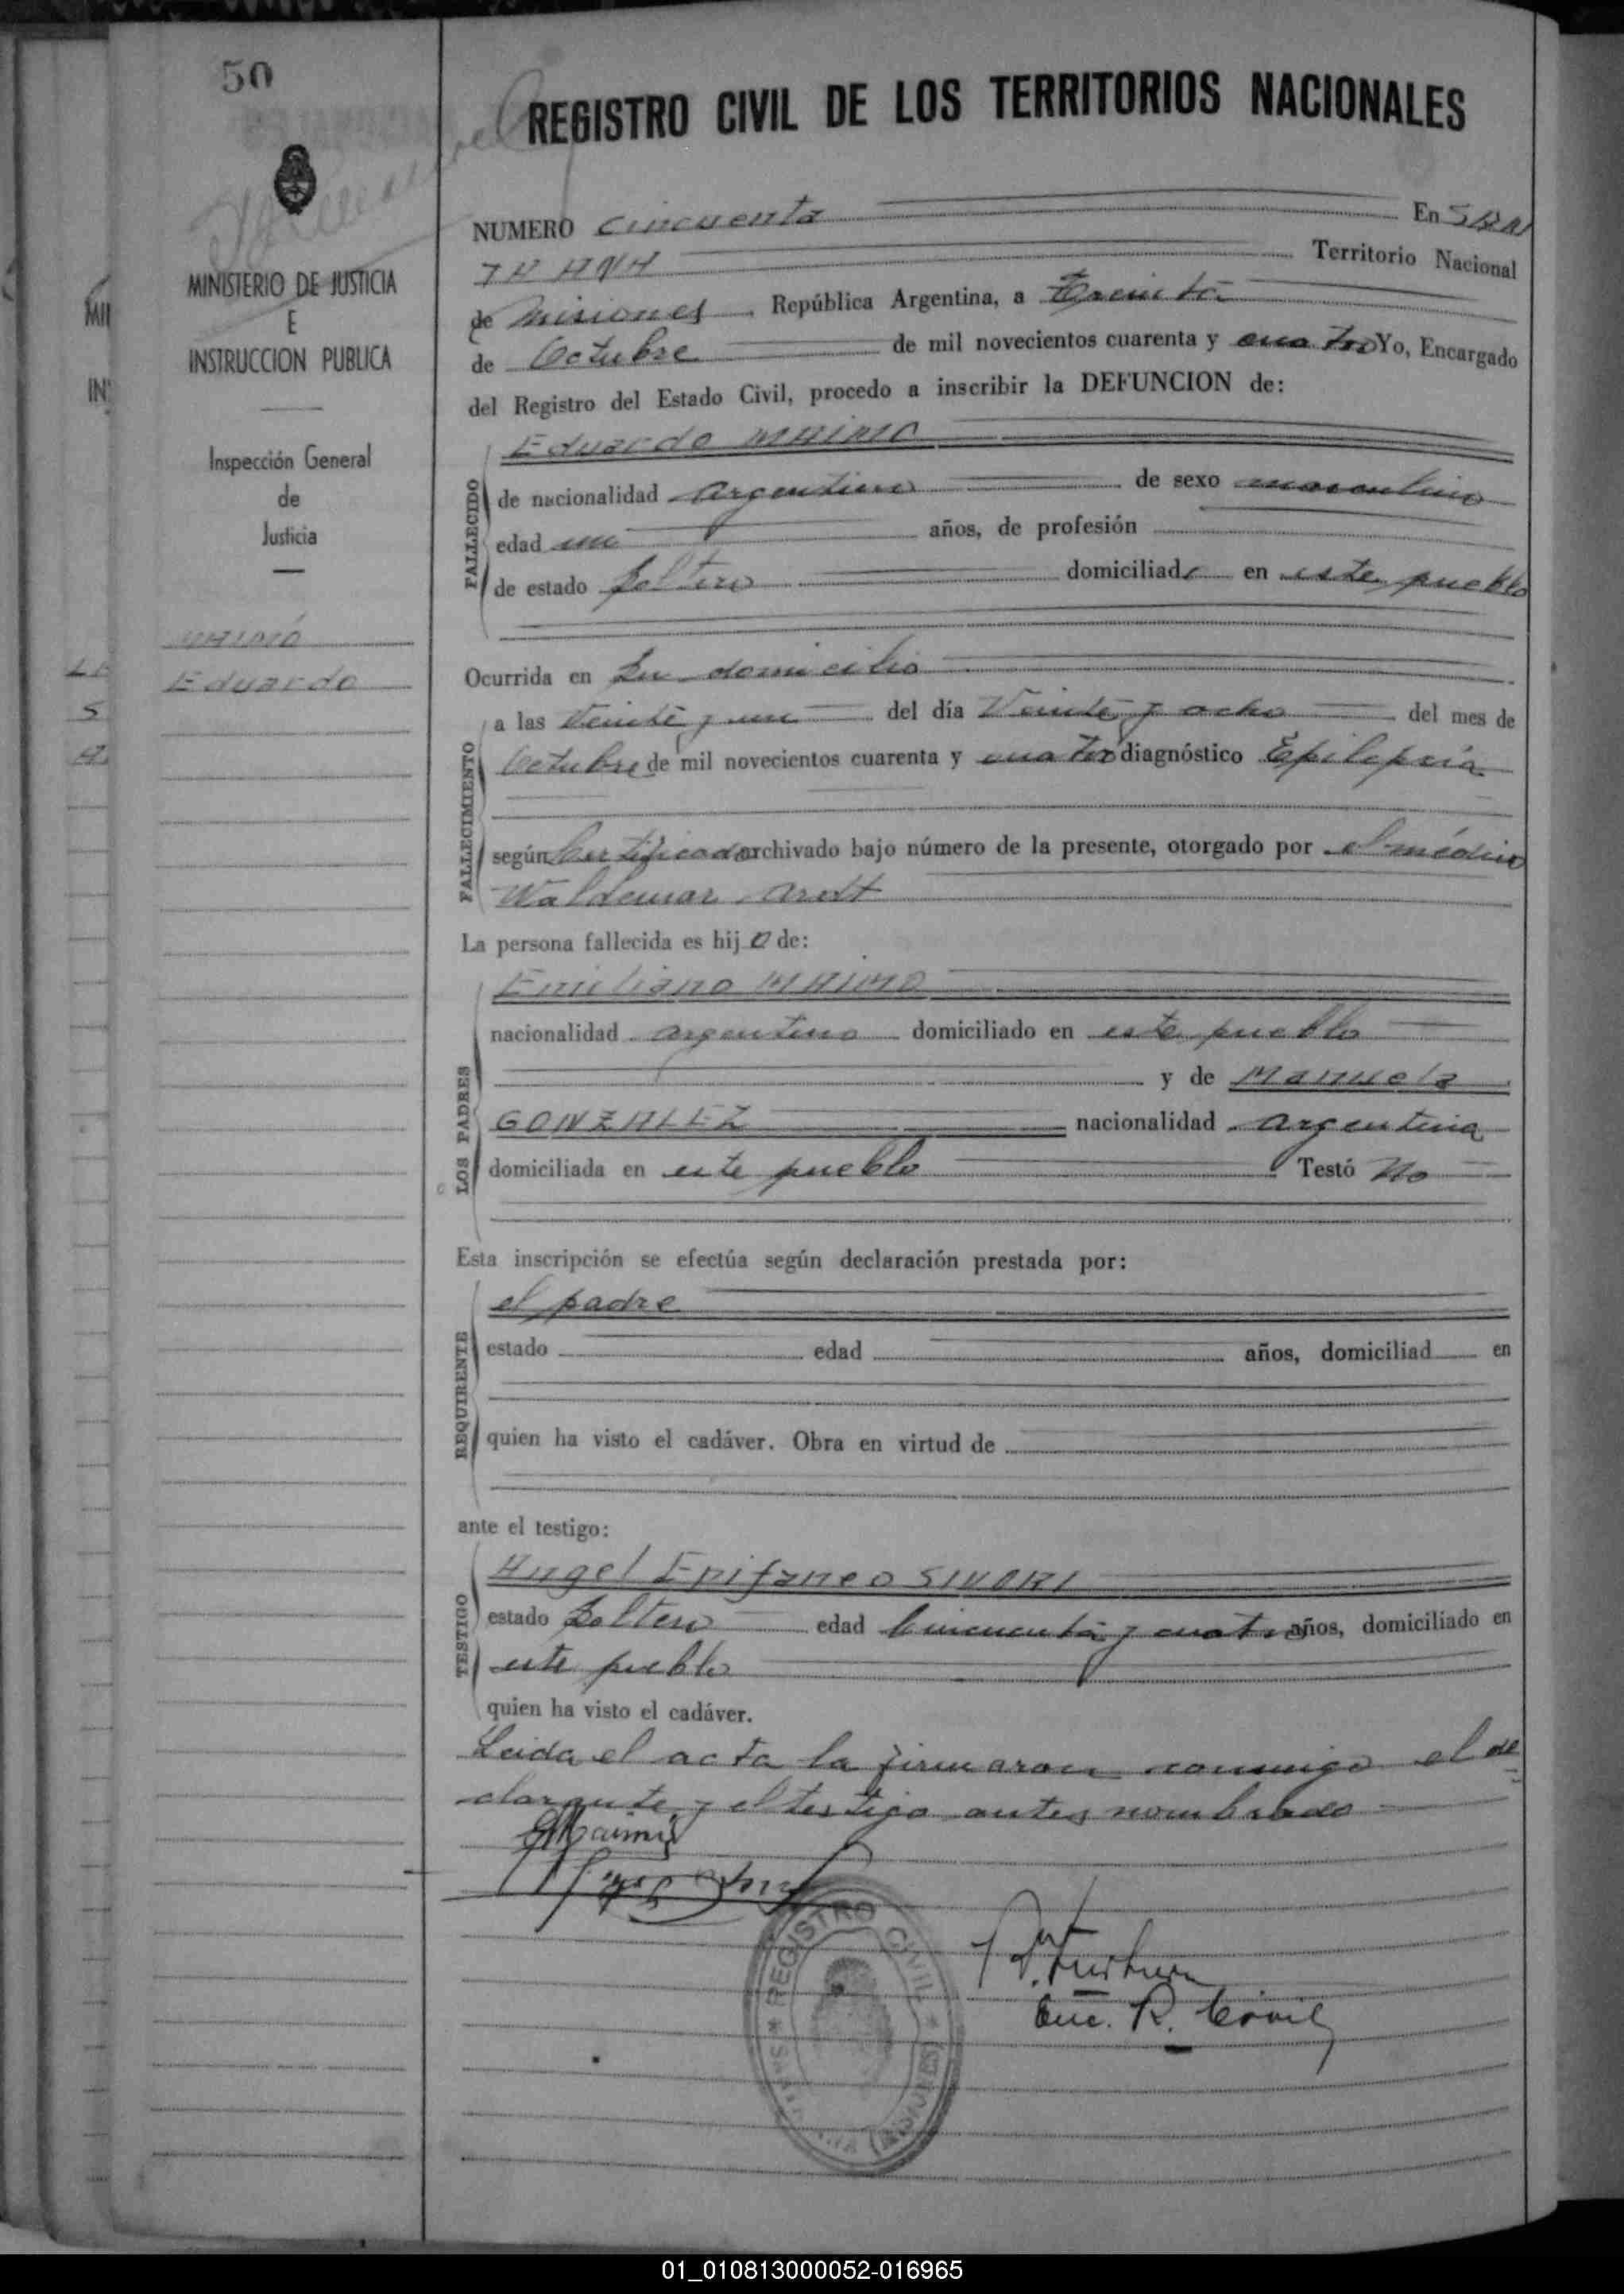 50
REGISTRO CIVIL DE LOS TERRITORIOS NACIONALES
MINISTERIO DE JUSTICIA
E
INSTRUCCION PUBLICA
Inspección General
de
Justicia
MAIMÓ
Eduardo
NUMERO cincuenta En SAN
TA ANA Territorio Nacional
de Misiones República Argentina, a treinta
de Octubre de mil novecientos cuarenta y cuatro Yo, Encargado
del Registro del Estado Civil, procedo a inscribir la DEFUNCION de:
FALLECIDO
Eduardo MAIMO
de nacionalidad argentino de sexo masculino
edad un años, de profesión
de estado soltero domiciliado en este pueblo
Ocurrida en su domicilio
FALLECIMIENTO
a las veinte y un del día veinte y ocho del mes de
Octubre de mil novecientos cuarenta y cuatro diagnóstico Epilepsia
según certificado archivado bajo número de la presente, otorgado por el médico
Waldemar Arolt
La persona fallecida es hijo de:
LOS PADRES
Emiliano MAIMO
nacionalidad argentino domiciliado en este pueblo
y de Manuela
GONZALEZ nacionalidad argentina
domiciliada en este pueblo Testó No
Esta inscripción se efectúa según declaración prestada por:
REQUIRENTE
el padre
estado edad años, domiciliad en
quien ha visto el cadáver. Obra en virtud de
ante el testigo:
TESTIGO
Angel Epifaneo SIVORI
estado soltero edad cincuenta y cuatro años, domiciliado en
este pueblo
quien ha visto el cadáver.
Leida el acta la firmaron conmigo el de
clarante y el testigo antes nombrado
EMaimó
Enc. R. Civil
REGISTRO CIVIL
(MISIONES)
01_010813000052-016965